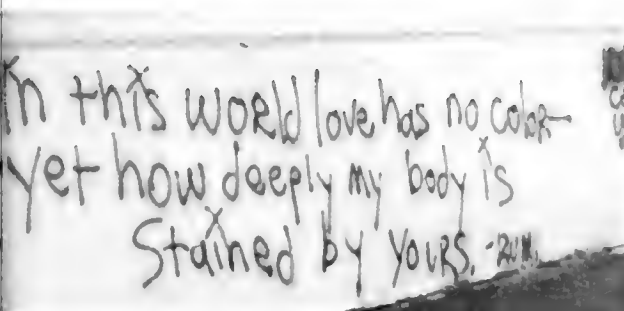 In this world love has no color-
yet how deeply my body is
Stained by yours.